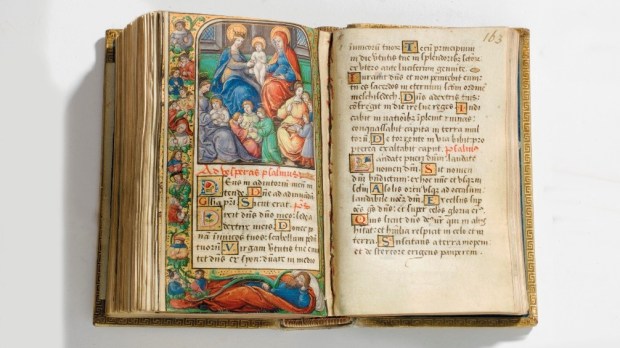 163
Ad vesperas psalmus
Deus in adiutoriũ meũ in
tende Dñe ad adiuuandũ
Gľia pr̃i Sicut erat. p̃s
Dixit dñs dño meo sede a
dextris meis. Donec po
nã inimicos tuos: scabellum pedũ
tuorũ. Virgam virtutis tue emit
tet dñs ex syon: dñare in medio
inimicorũ tuorũ. Tecũ principium
in die virtutis tue in splendoribꝫ sctõrũ
ex vtero ante luciferum genui te.
Iurauit dñs et non penitebit eum:
tu es sacerdos in eternum scdm̃ ordinẽ
melchisedech. Dñs a dextris tuis:
cõfregit in die ire sue reges. Iu
dicabit in nationibꝫ implebit ruinas:
conquassabit capita in terra mul
torũ. De torrente in via bibet pro
pterea exaltabit caput. psalmus
Laudate pueri dñm: laudate
nomen dñi. Sit nomen
dñi bñdictum: ex hoc nũc et vsqꝫ ĩ
sclm̃. A solis ortu vsqꝫ ad occasum:
laudabile nomẽ dñi. Excelsus sup
oẽs gẽtes dñs: et super celos gloria eiꝰ.
Quis sicut dñs deꝰ nr̃ qui in altis
hĩtat: et humilia respicit in celo et in
terra. Suscitans a terra inopem
et de stercore erigens pauperem.